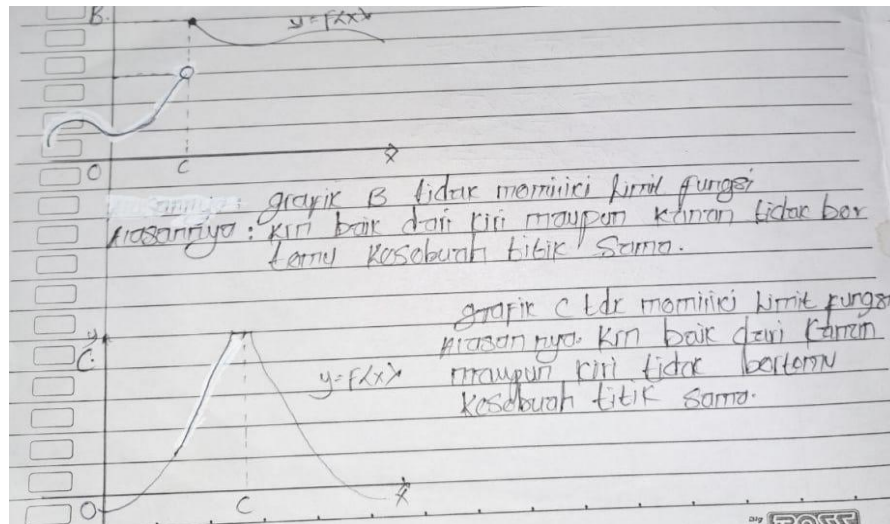 B.
y=f(x)
O
C
x
grafik B tidak memiliki limit fungsi
Alasannya: krn baik dari kiri maupun kanan tidak ber
temu kesebuah titik sama.
grafik C tdk memiliki limit fungsi
Alasan nya. krn baik dari kanan
maupun kiri tidak bertemu
kesebuah titik sama.
y
C.
y=f(x)
O
C
x
BOSS